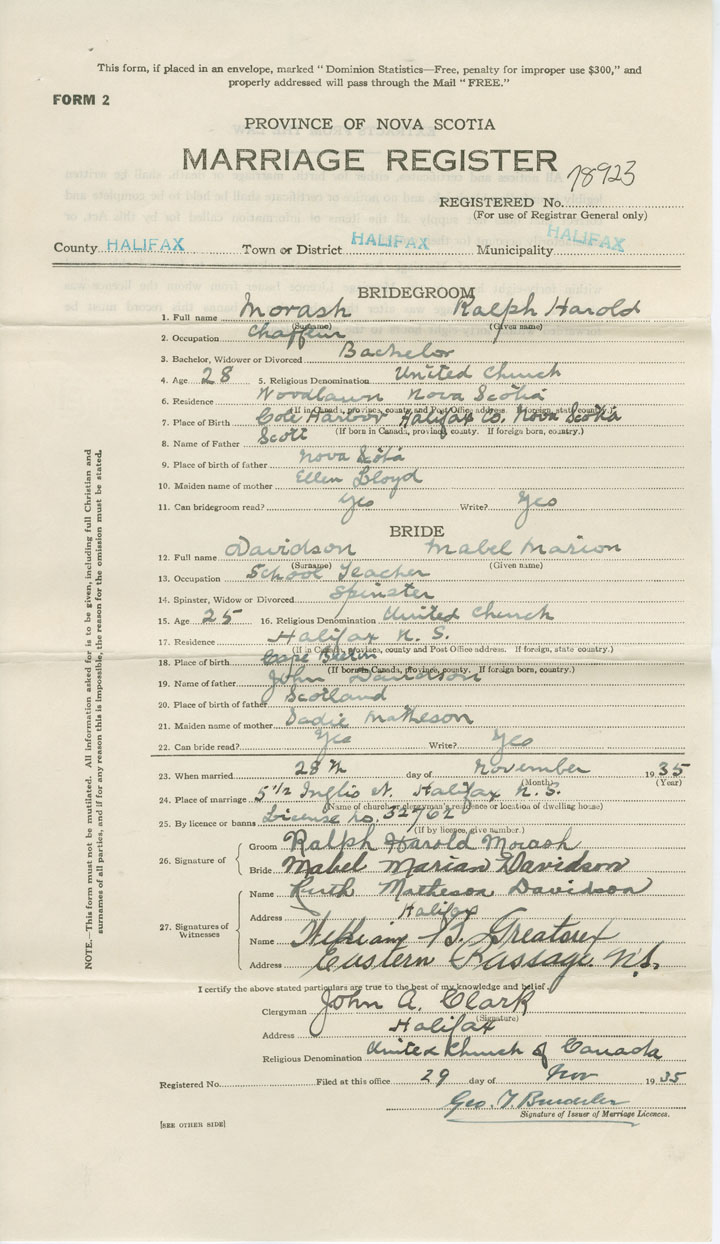 This form, if placed in an envelope, marked "Dominion Statistics—Free, penalty for improper use $300," and
properly addressed will pass through the Mail "FREE."
FORM 2
PROVINCE OF NOVA SCOTIA
MARRIAGE REGISTER
78923
REGISTERED No.
(For use of Registrar General only)
County HALIFAX Town or District HALIFAX Municipality HALIFAX
BRIDEGROOM
1. Full name Morash Ralph Harold
(Surname) (Given name)
2. Occupation Chaffeur
3. Bachelor, Widower or Divorced Bachelor
4. Age 28 5. Religious Denomination United Church
6. Residence Woodlawn Nova Scotia
(If in Canada, province, county and Post Office address. If foreign, state county.)
7. Place of Birth Cole Harbor Halifax Co. Nova Scotia
(If born in Canada, province, county. If foreign born, country.)
8. Name of Father Scott
9. Place of birth of father Nova Scotia
10. Maiden name of mother Ellen Lloyd
11. Can bridegroom read? Yes Write? Yes
BRIDE
12. Full name Davidson Mabel Marion
(Surname) (Given name)
13. Occupation School Teacher
14. Spinster, Widow or Divorced Spinster
15. Age 25 16. Religious Denomination United Church
17. Residence Halifax N. S.
(If in Canada, province, county and Post Office address. If foreign, state country.)
18. Place of birth Cape Breton
(If born in Canada, province, county. If foreign born, country.)
19. Name of father John Davidson
20. Place of birth of father Scotland
21. Maiden name of mother Sadie Matheson
22. Can bride read? Yes Write? Yes
23. When married 28th day of November 1935
(Month) (Year)
24. Place of marriage 5 1/2 Inglis St. Halifax N. S.
(Name of church or clergyman's residence or location of dwelling house)
25. By licence or banns License No. 32762
(If by licence, give number.)
26. Signature of
Groom Ralph Harold Morash
Bride Mabel Marian Davidson
27. Signatures of Witnesses
Name Ruth Matheson Davidson
Address Halifax
Name William
Address Eastern Passage N.S.
I certify the above stated particulars are true to the best of my knowledge and belief.
Clergyman John A. Clark
(Signature)
Address Halifax
Religious Denomination United Church of Canada
Registered No. Filed at this office 29 day of Nov 1935
Geo. T.
Signature of Issuer of Marriage Licences.
[SEE OTHER SIDE]
NOTE.—This form must not be mutilated. All information asked for is to be given, including full Christian and
surnames of all parties, and if for any reason this is impossible, the reason for the omission must be stated.